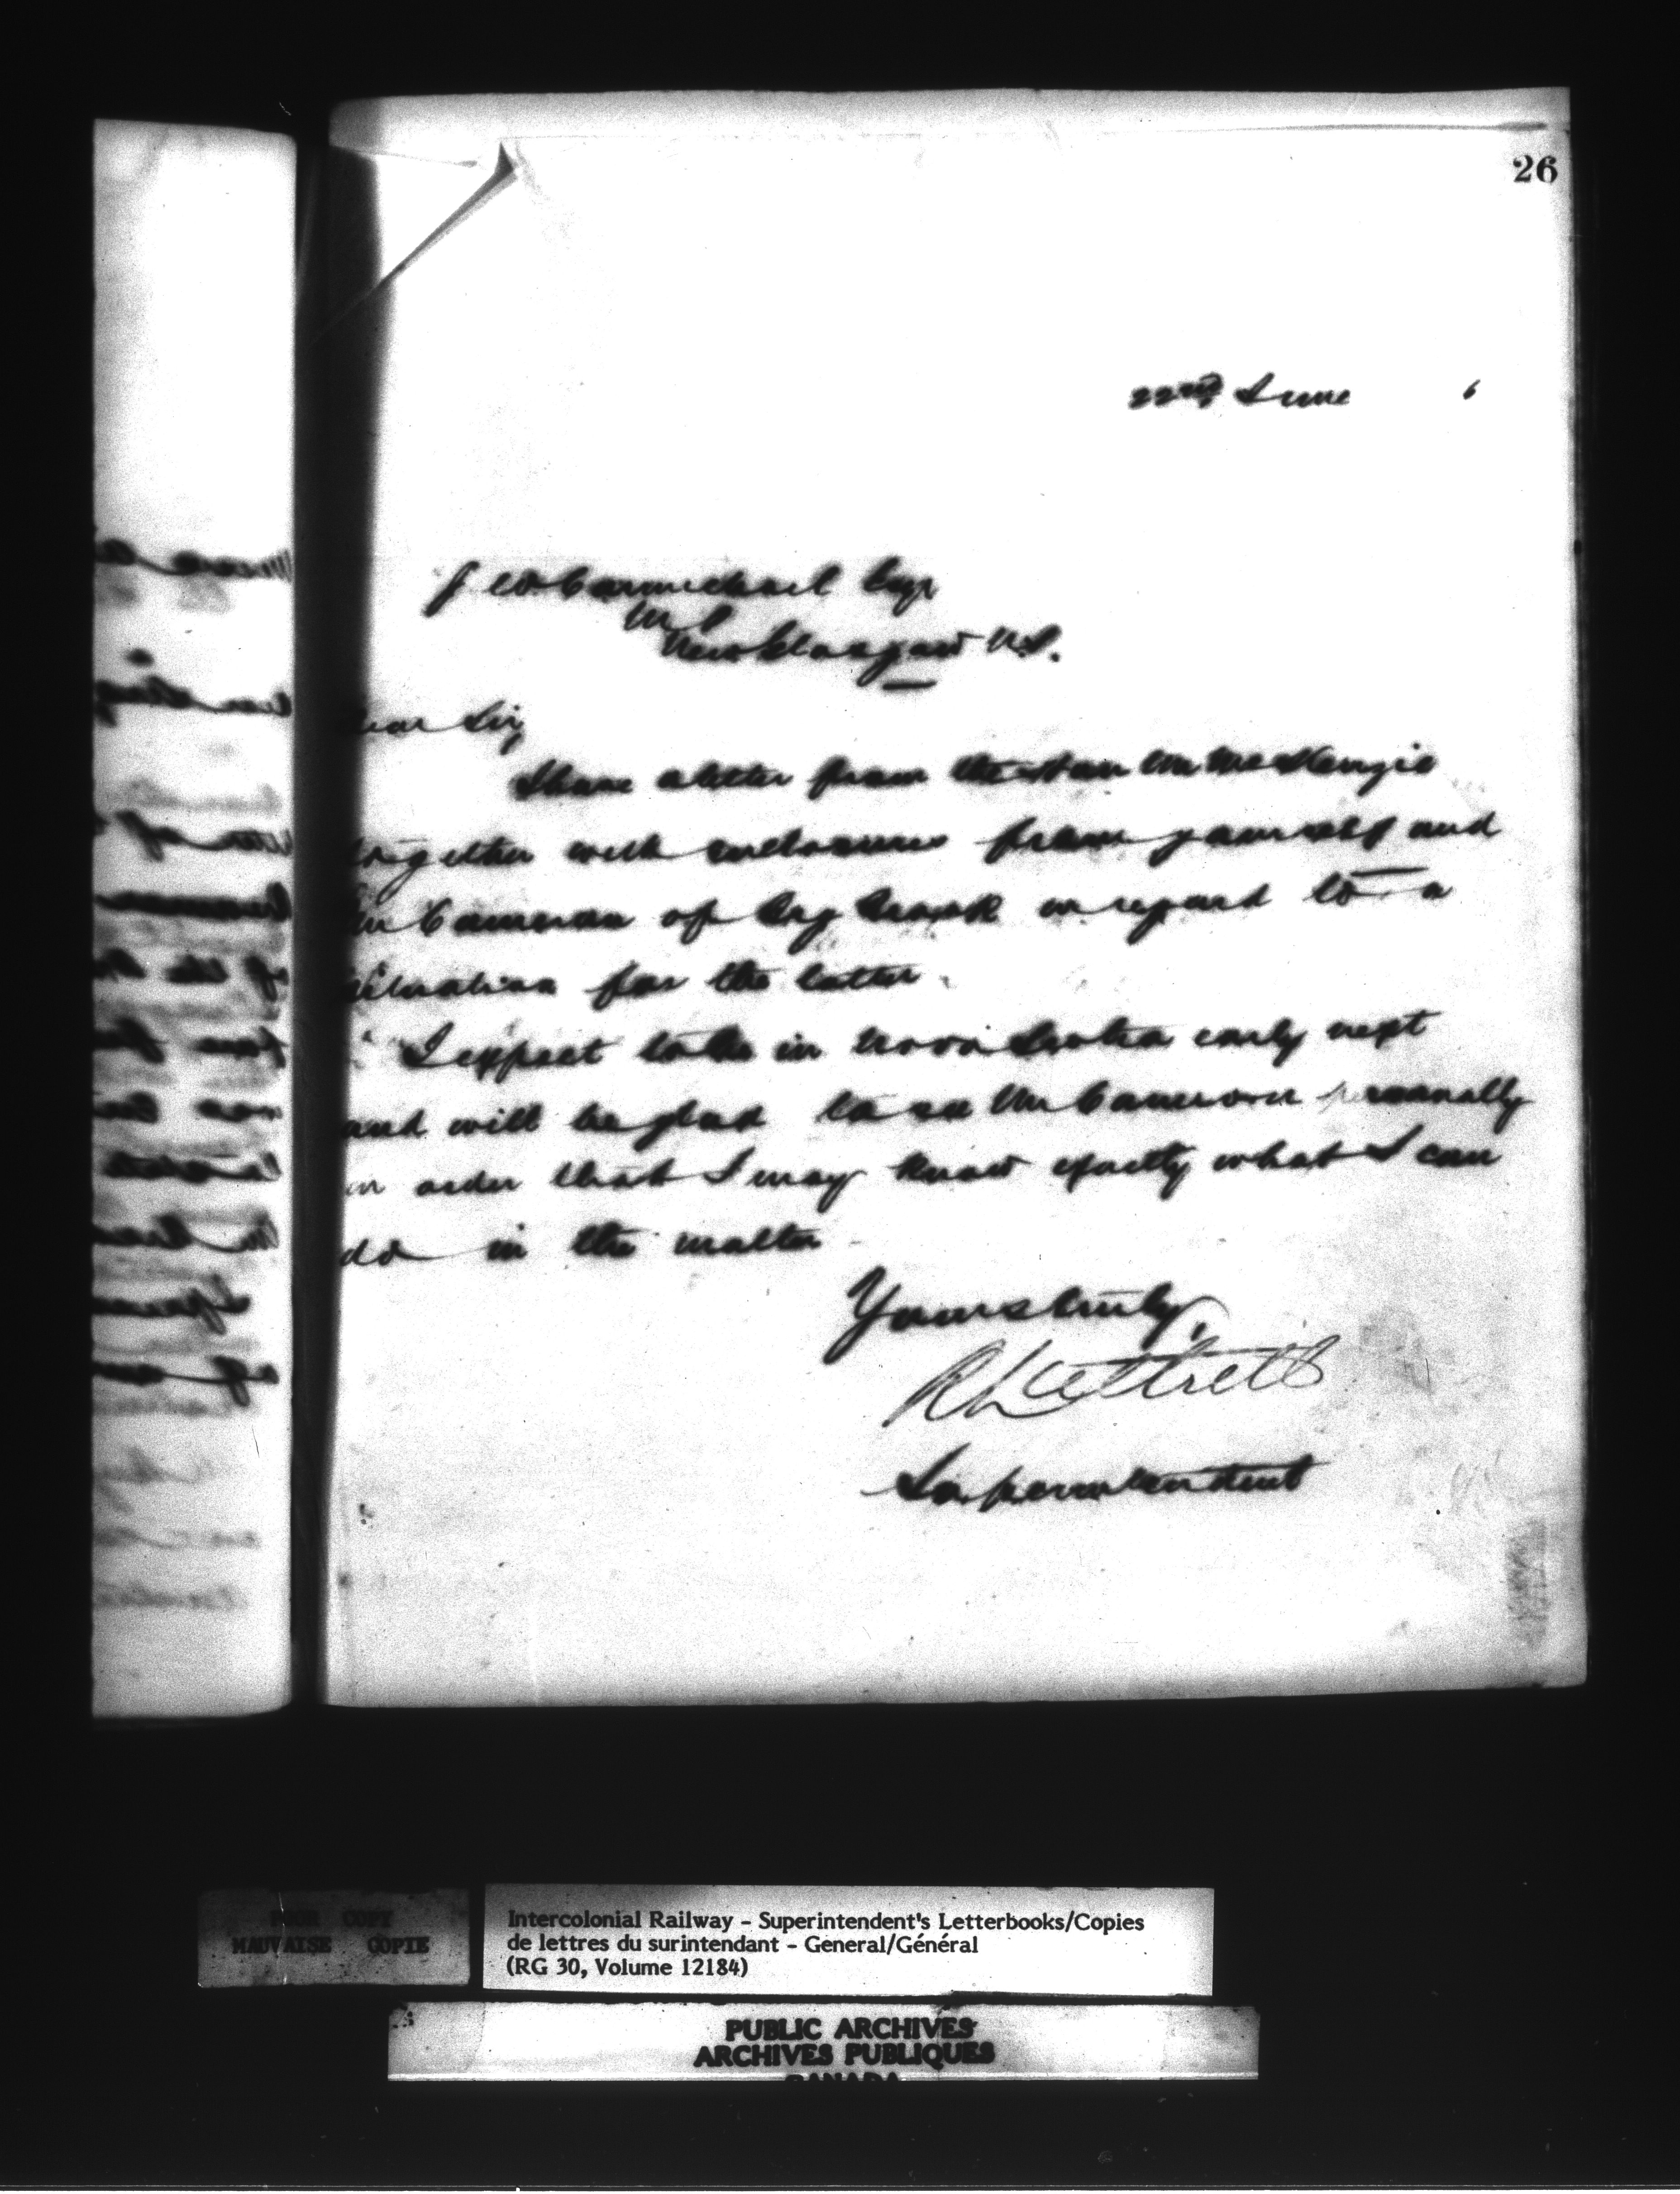 26
22nd June 6
J W Carmichael Esqr
M P
New Glasgow N.S.
Dear Sir,
I have a letter from the Hon Mr McKenzie
together with enclosures from yourself and
Mr Cameron of Big Brook in regard to a
situation for the latter.
I expect to be in Nova Scotia early next
and will be glad to see Mr Cameron personally
in order that I may know exactly what I can
do in the matter
Yours truly,
Superintendent
POOR COPY
MAUVAISE COPIE
Intercolonial Railway - Superintendent's Letterbooks/Copies
de lettres du surintendant - General/Général
(RG 30, Volume 12184)
PUBLIC ARCHIVES
ARCHIVES PUBLIQUES
CANADA